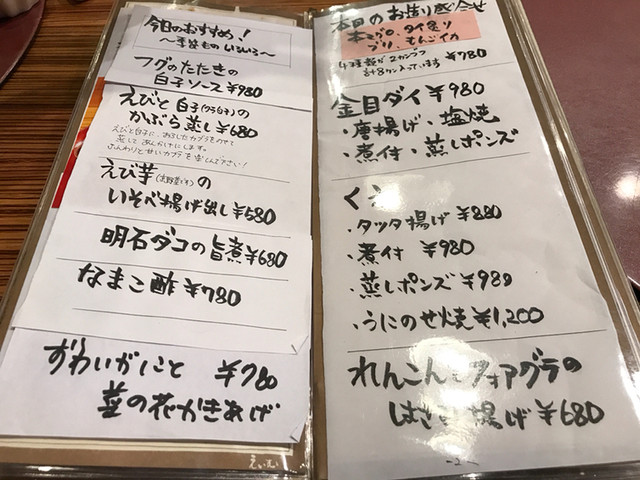 今日のおすすめ!
〜季節もの いろいろ〜
フグのたたきの
白子ソース ¥980
えびと白子(タラ白子)の
かぶら蒸し ¥680
えびと白子に、おろしたカブラをのせて
蒸して あんかけにします。
ふんわりと甘いカブラを 楽しんで下さい!
えび芋(京野菜です)の
いそべ揚げ出し ¥580
明石ダコの旨煮 ¥680
なまこ酢 ¥780
ずわいがにと ¥780
菜の花かきあげ
本日のお造り盛合せ
本マグロ、タイ炙り
ブリ、もんごイカ
4種類が2カンづつ
計8カン入っています ¥780
金目ダイ ¥980
・唐揚げ・塩焼
・煮付・蒸しポンズ
くえ
・タツタ揚げ ¥880
・煮付 ¥980
・蒸しポンズ ¥980
・うにのせ焼 ¥1,200
れんこんとフォアグラの
はさみ揚げ ¥680
-2-